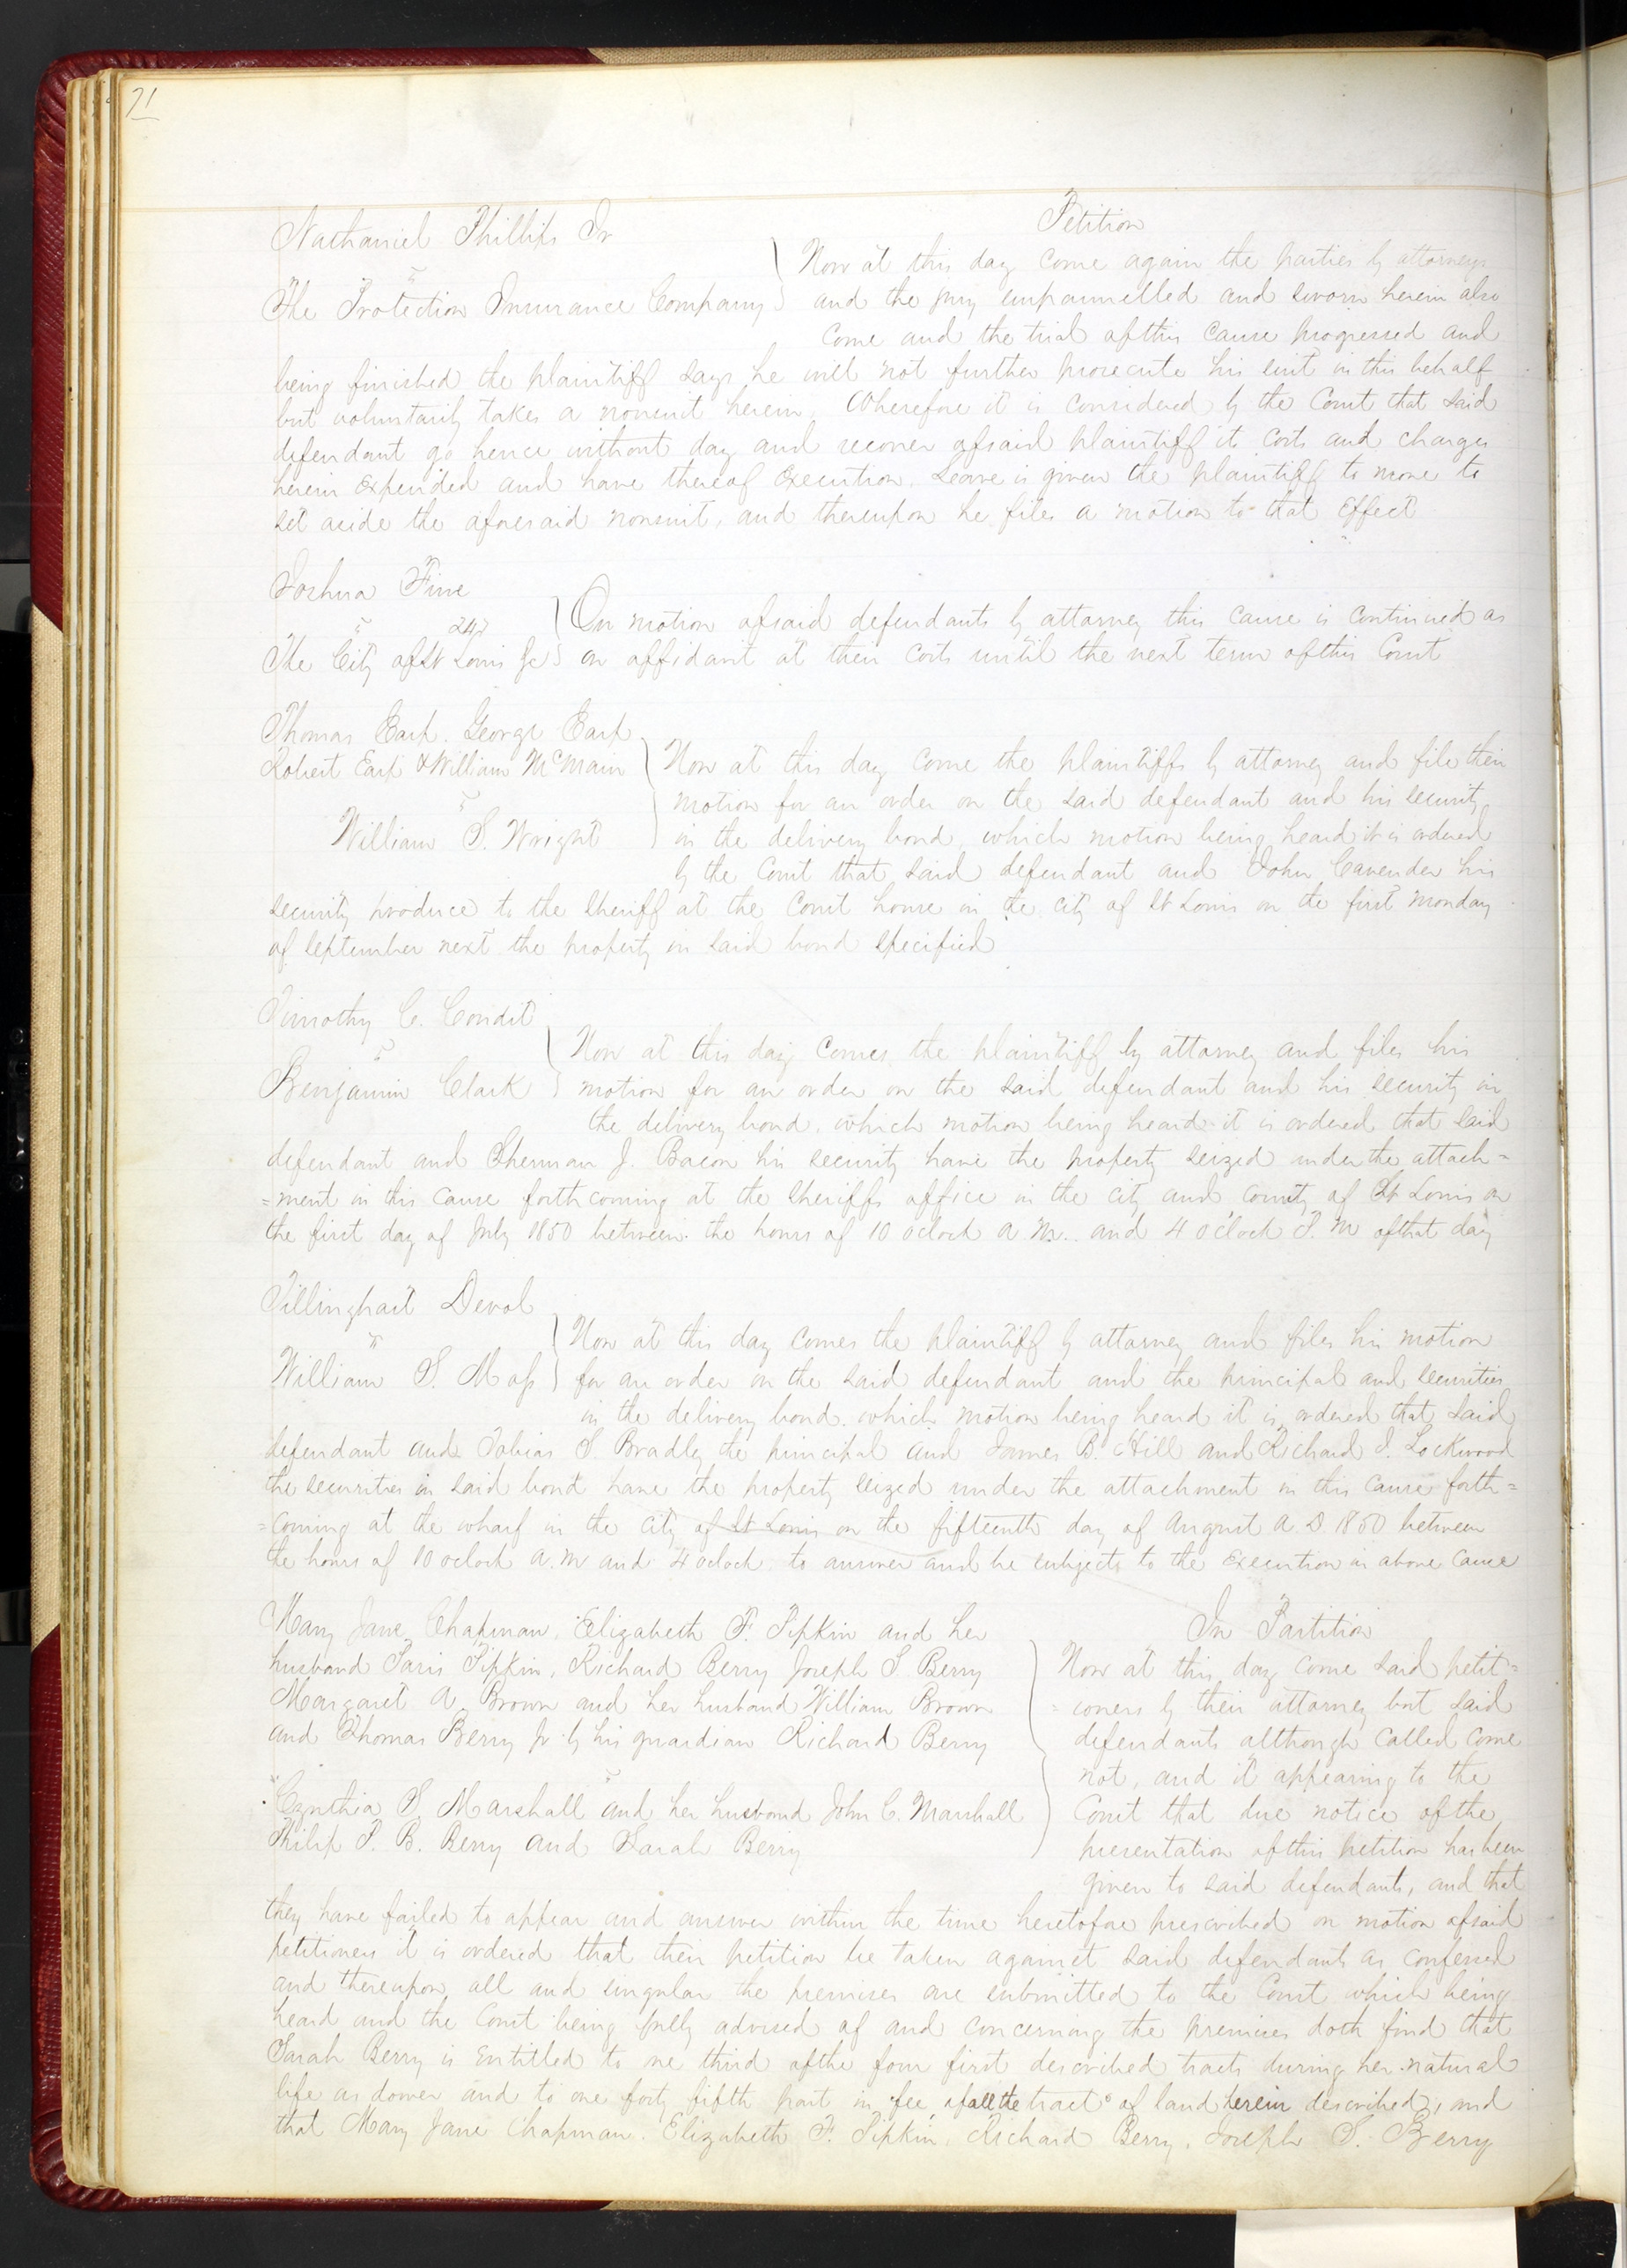 71
Nathaniel Phillips Jr
Petition
v
The Protection Insurance Company
Now at this day come again the parties by attorneys
and the jury empannelled and sworn herein also
come and the trial of this cause progressed and
being finished the plaintiff says he will not further prosecute his suit in this behalf
but voluntarily takes a nonsuit herein. Wherefore it is considered by the Court that said
defendant go hence without day and recover of said plaintiff its costs and charges
herein expended and have thereof execution. Leave is given the plaintiff to move to
set aside the aforesaid nonsuit, and thereupon he files a motion to that effect
Joshua Fine
v 24
The City of St Louis &c
On motion of said defendants by attorney this cause is continued as
on affidavit at their costs until the next term of this Court
Thomas Earp. George Earp
Robert Earp & William McMain
v
William S. Wright
Now at this day come the plaintiffs by attorney and file their
motion for an order on the said defendant and his security
in the delivery bond, which motion being heard it is ordered
by the Court that said defendant and John Cavender his
security produce to the Sheriff at the Court house in the city of St Louis on the first Monday
of September next the property in said bond specified
Timothy C. Condit
v
Benjamin Clark
Now at this day comes the plaintiff by attorney and files his
motion for an order on the said defendant and his security in
the delivery bond. which motion being heard it is ordered that said
defendant and Sherman J. Bacon his security have the property seized under the attach=
=ment in this cause forthcoming at the Sheriffs office in the city and county of St Louis on
the first day of July 1850 between the hours of 10 oclock a.m. and 4 oclock P. M of that day
Tillinghast Devol
v
William S. Moss
Now at this day comes the plaintiff by attorney and files his motion
for an order on the said defendant and the principal and securities
in the delivery bond. which motion being heard it is ordered that said
defendant and Tobias S. Bradley the principal and James B. Hill and Richard J. Lockwood
the securities in said bond have the property seized under the attachment in this cause forth=
=coming at the wharf in the city of St Louis on the fifteenth day of August A.D 1850 between
the hours of 10 oclock a.m and 4 oclock. to answer and be subject to the execution in above cause
Mary Jane Chapman. Elizabeth F. Pipkin and her
husband Paris Pipkin, Richard Berry Joseph S. Berry
Margaret A. Brown and her husband William Brown
and Thomas Berry Jr by his guardian Richard Berry
v
Cynthia S. Marshall and her husband John C. Marshall
Philip P. B. Berry and Sarah Berry
In Partition
Now at this day come said petit=
=ioners by their attorney but said
defendants although called come
not, and it appearing to the
Court that due notice of the
presentation of this petition has been
given to said defendants, and that
they have failed to appear and answer within the time heretofore prescribed on motion of said
petitioners it is ordered that their petition be taken against said defendants as confessed
and thereupon all and singular the premises are submitted to the Court which being
heard and the Court being fully advised of and concerning the premises doth find that
Sarah Berry is entitled to one third of the four first described tracts during her natural
life as dower and to one forty fifth part in fee, of all the tracts of land herein described, and
that Mary Jane Chapman. Elizabeth F. Pipkin, Richard Berry, Joseph S. Berry